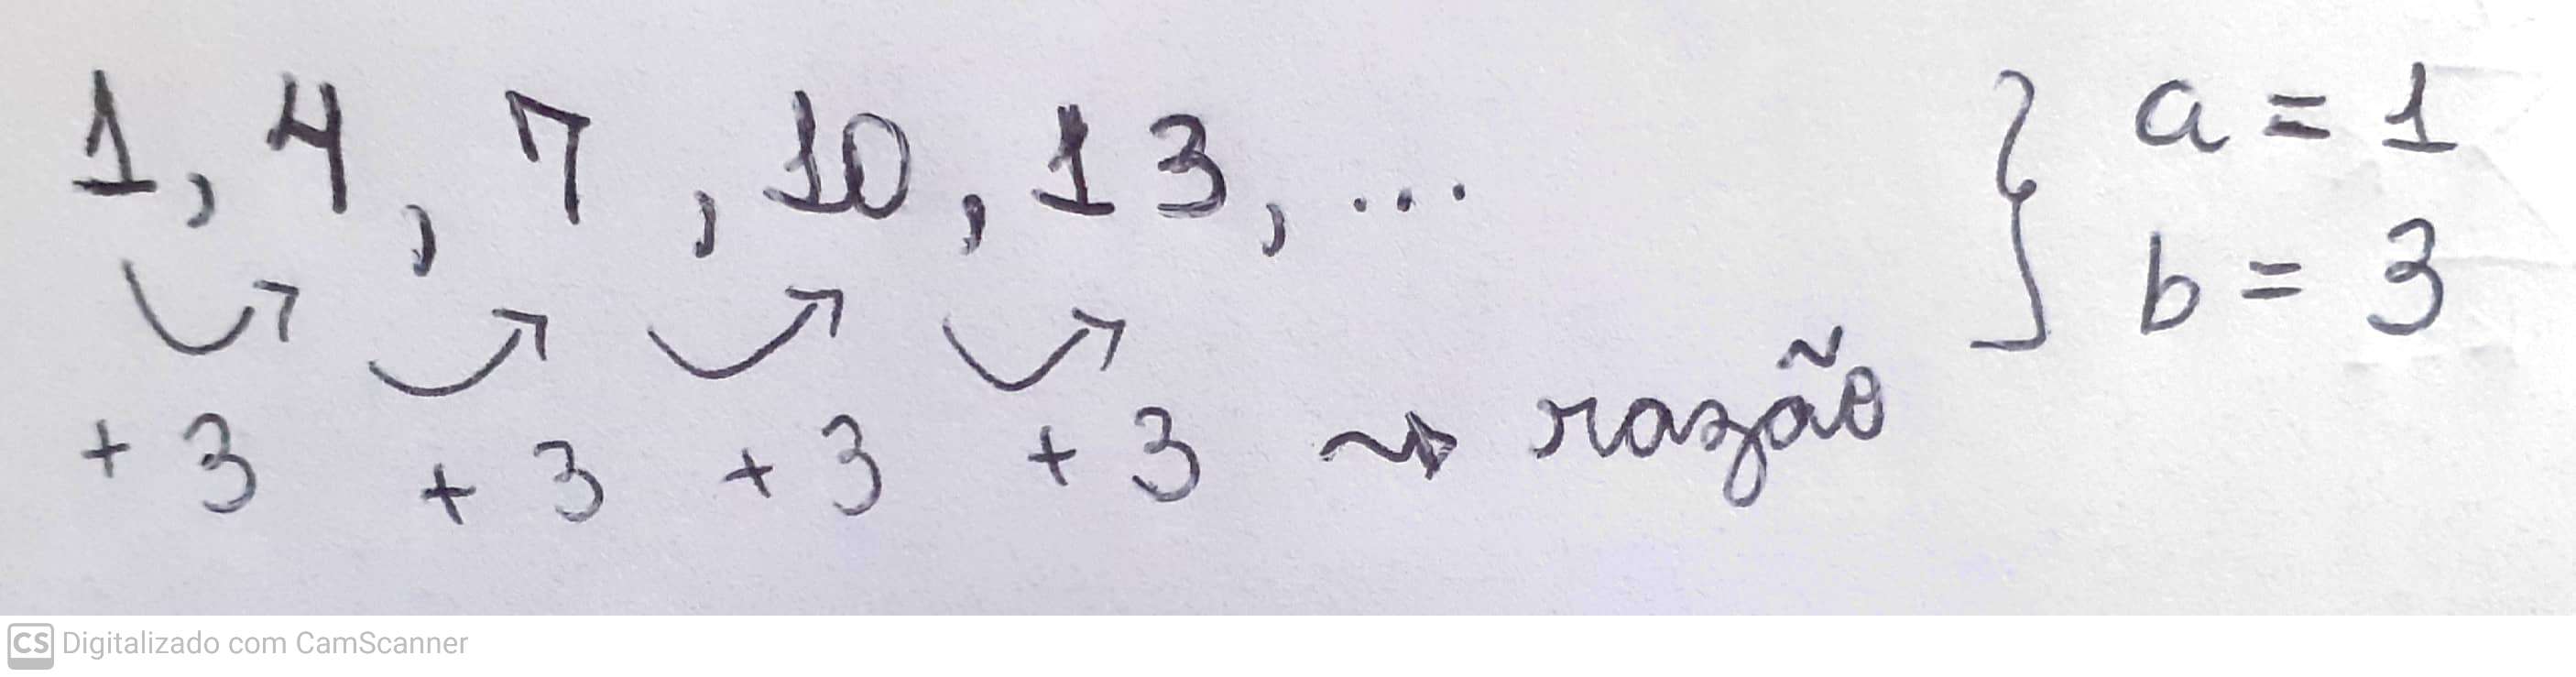 1, 4, 7, 10, 13, ...
+3 +3 +3 +3 ⇝ razão
} a = 1
b = 3
CS Digitalizado com CamScanner